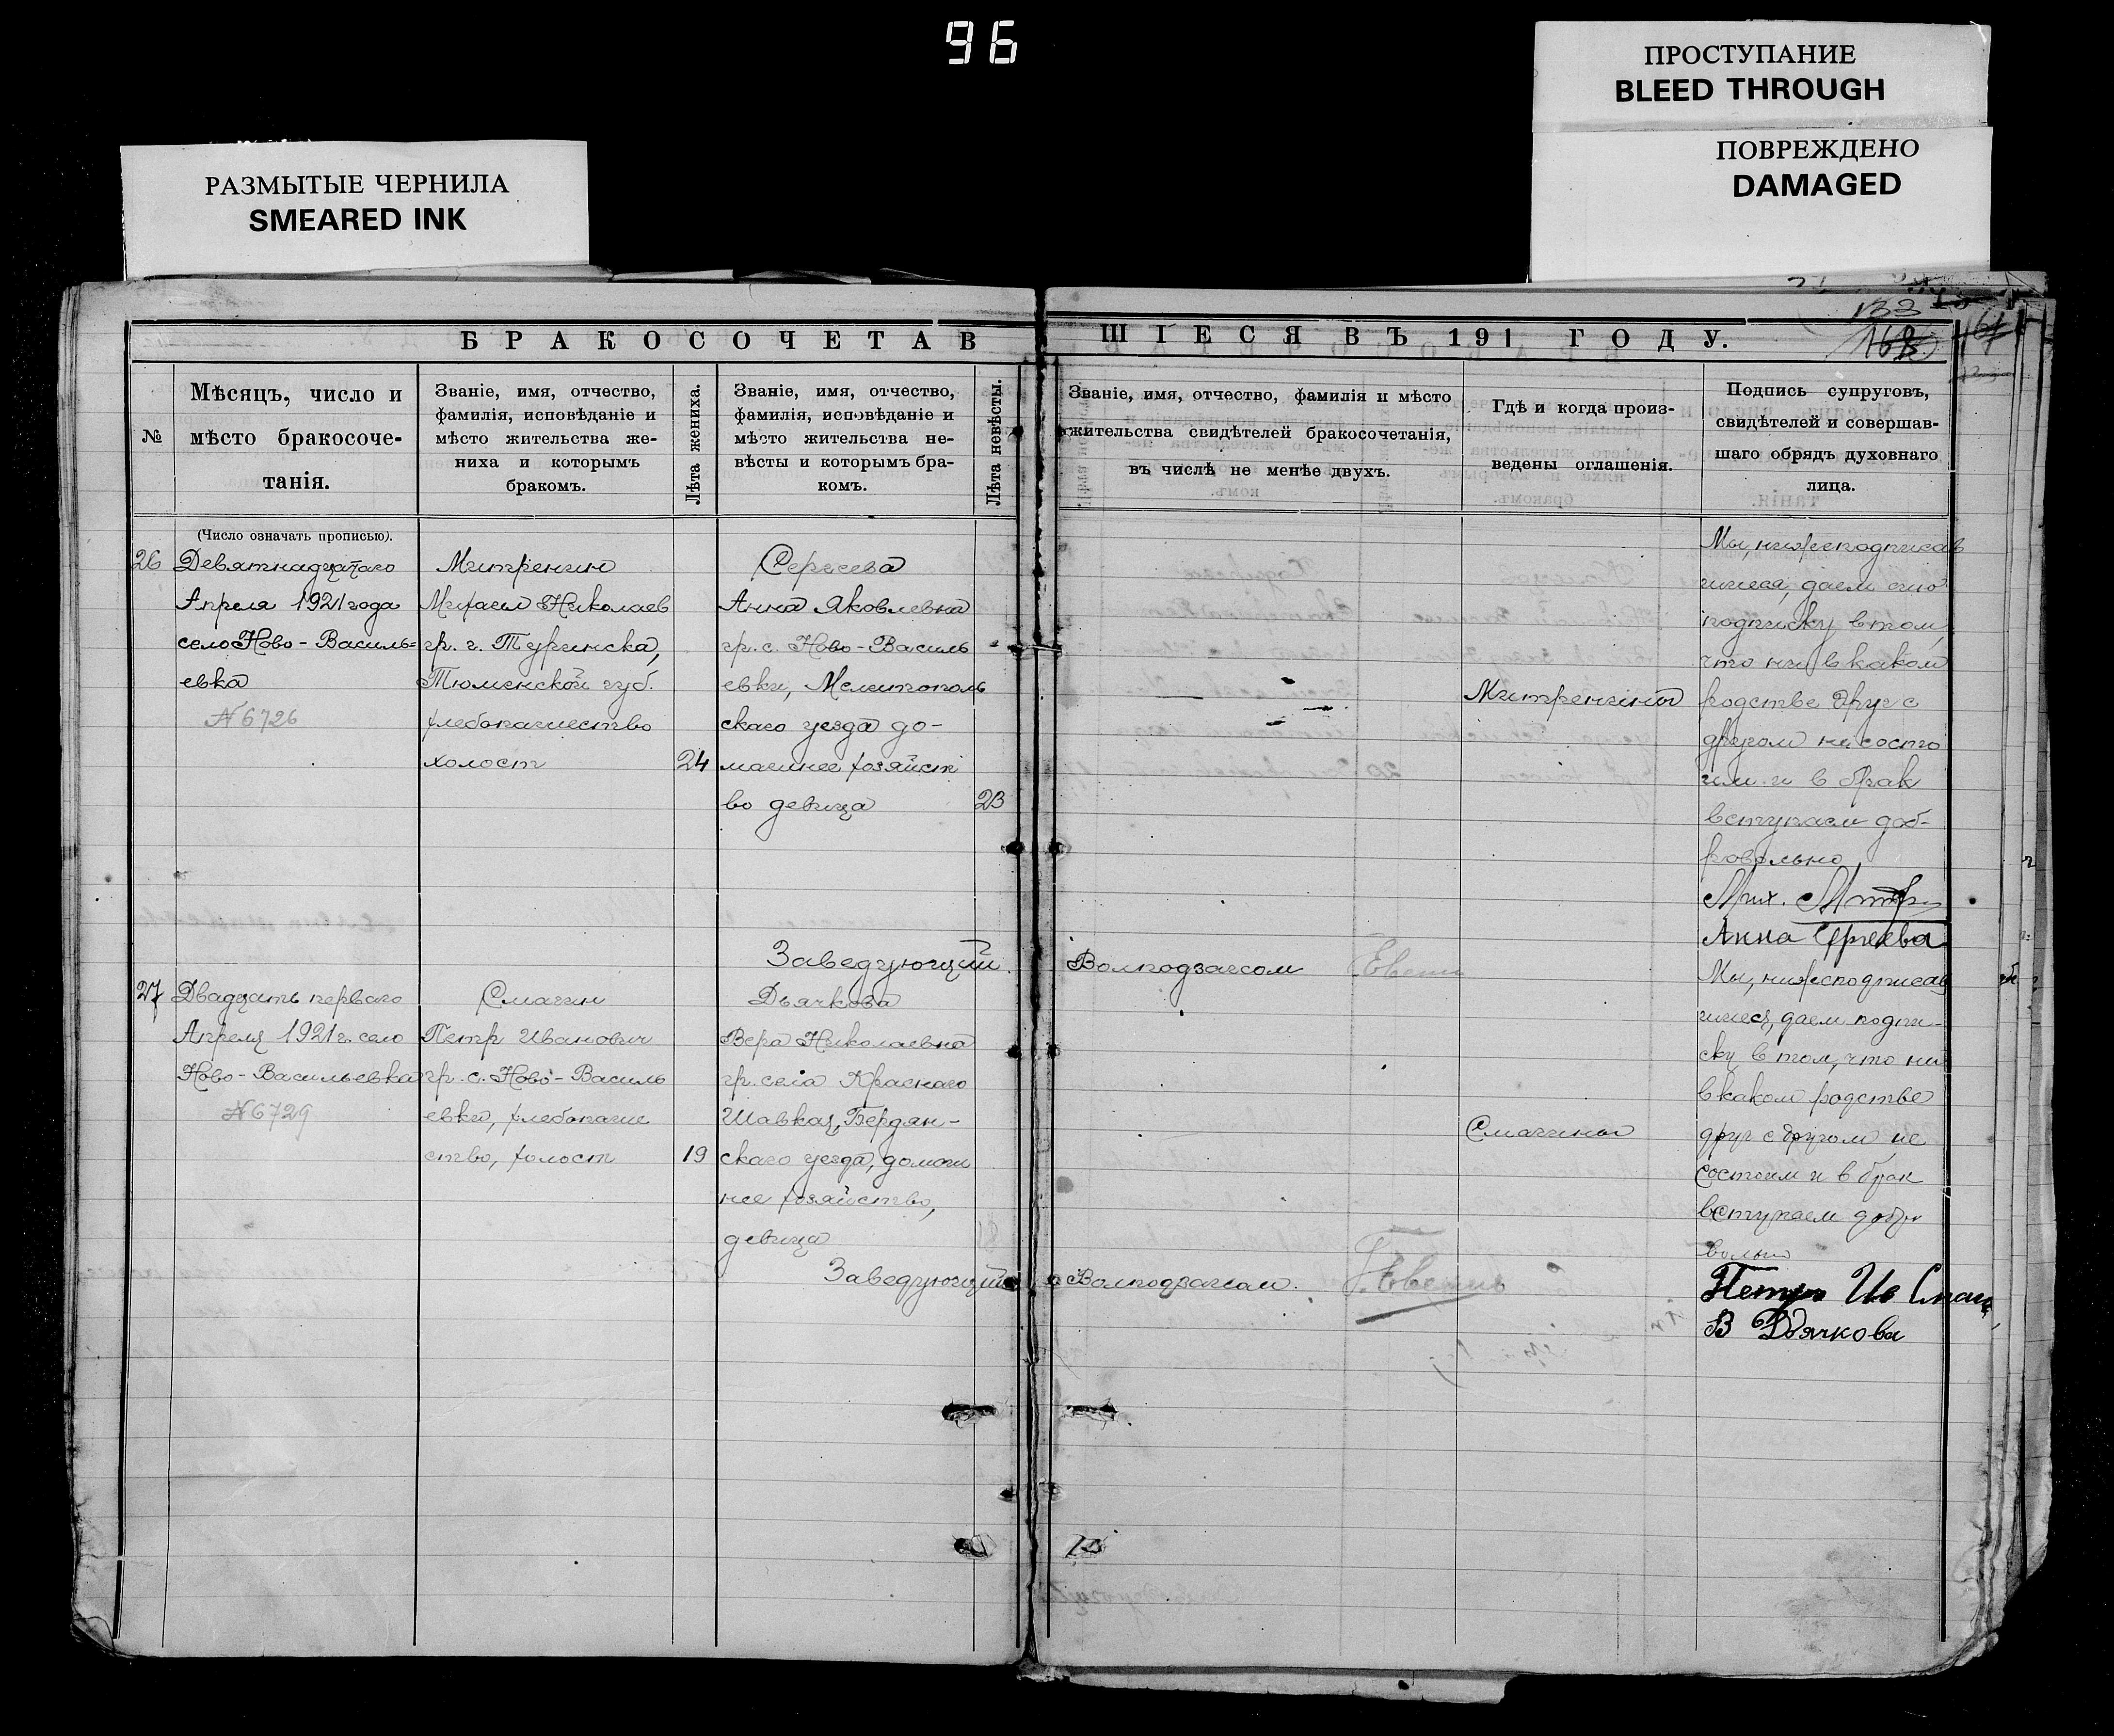 96
ПРОСТУПАНИЕ
BLEED THROUGH
ПОВРЕЖДЕНО
DAMAGED
РАЗМЫТЫЕ ЧЕРНИЛА
SMEARED INK
133
БРАКОСОЧЕТАВ
ШІЕСЯ ВЪ 191 ГОДУ.
№
Мѣсяцъ, число и
мѣсто бракосоче-
танія.
Званіе, имя, отчество,
фамилія, исповѣданіе и
мѣсто жительства же-
ниха и которымъ
бракомъ.
Лѣта жениха.
Званіе, имя, отчество,
фамилія, исповѣданіе и
мѣсто жительства не-
вѣсты и которымъ бра-
комъ.
Лѣта невѣсты.
Званіе, имя, отчество, фамилія и мѣсто
жительства свидѣтелей бракосочетанія,
въ числѣ не менѣе двухъ.
Гдѣ и когда произ-
ведены оглашенія.
Подпись супруговъ,
свидѣтелей и совершав-
шаго обрядъ духовнаго
лица.
(Число означать прописью).
26
Девятнадцатаго
Апреля 1921 года
село Ново-Василь=
евка
№ 6726
Митренин
Михаил Николаев
гр. г. Туринска,
Тюменской губ.
хлебопашество
холост
24
Сергеева
Анна Яковлевна
гр. с. Ново-Василь
евки, Мелитополь
скаго уезда до-
машнее хозяйст
во девица
23
Митренины
Мы, нижеподписав
шиеся, даем сию
подписку в том,
что ни в каком
родстве друг с
другом не состо
им и в брак
вступаем доб-
ровольно
Мих. Митр
Анна Сергеева
Заведующий
Волподзагсом
27
Двадцать перваго
Апреля 1921 г. село
Ново-Васильевка
№ 6729
Смагин
Петр Иванович
гр. с. Ново-Василь
евки, хлебопаше
ство, холост
19
Дьячкова
Вера Николаевна
гр. села Краснаго
Бердян-
скаго уезда, домаш
нее хозяйство,
девица
18
Смагины
Мы, нижеподписав
шиеся, даем подпи-
ску в том, что ни
в каком родстве
друг с другом не
состоим и в брак
вступаем добро
вольно
Петр Ив Смаг
В Дьячкова
Заведующий
Волподзагсом.